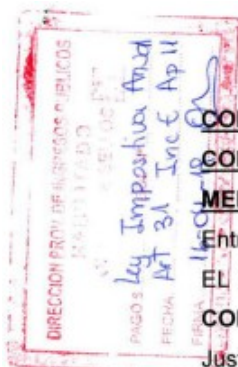 DIRECCION PROV. DE INGRESOS PUBLICOS
HABILITADO
PAGO $ Ley Impositiva Anual
Art 31 Inc E Ap 11
FECHA
FIRMA
CO
CO
ME
Ent
EL
CO
Jus